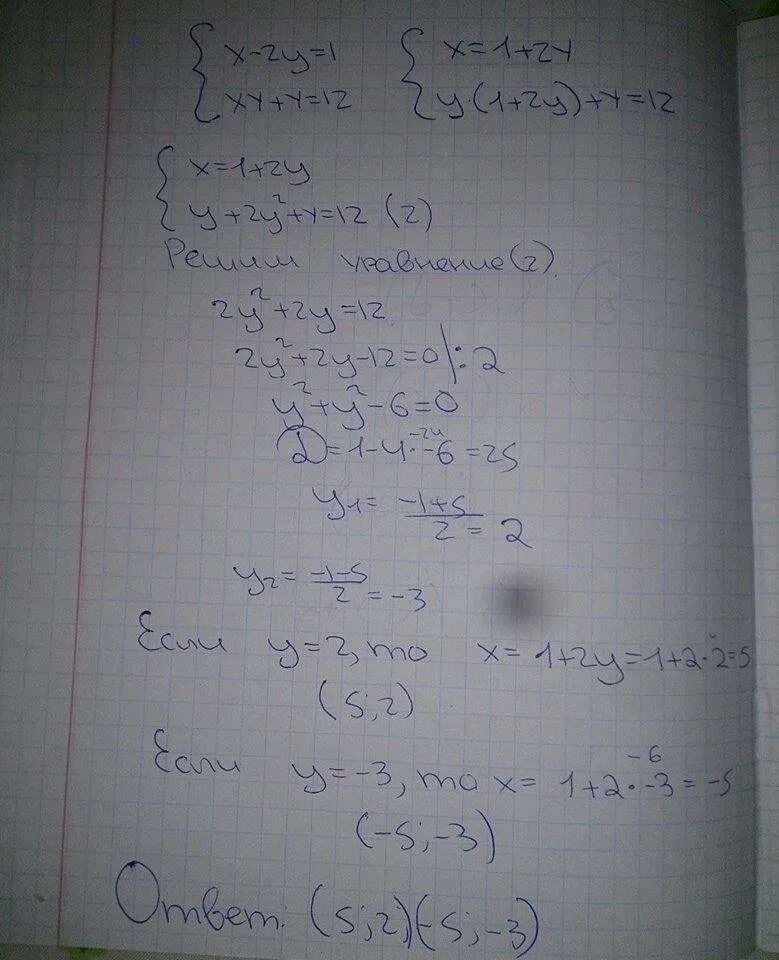 { x-2y=1 { x=1+2y
xy+y=12 y·(1+2y)+y=12
{ x=1+2y
y+2y²+y=12 (2)
Решим уравнение (2).
2y²+2y=12
2y²+2y-12=0 |:2
y²+y²-6=0
-24
D=1-4·-6=25
y₁= (-1+5)/2 = 2
y₂= (-1-5)/2 = -3
Если y=2, то x= 1+2y=1+2·2=5
(5;2)
-6
Если y=-3, то x= 1+2·-3=-5
(-5;-3)
Ответ: (5;2)(-5;-3)